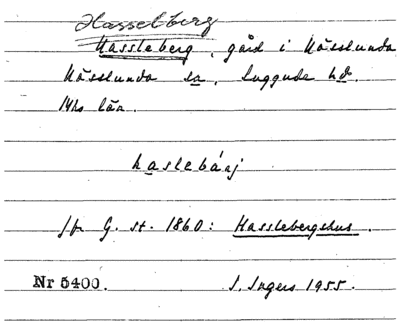 Hasselberg
Hassleberg, gård i Mösslunda
Mösslunda sn, Luggude hd.
Mhs län.
haslebáaj
jfr G. st. 1860: Hasslebergshus.
Nr 5400. I. Ingers 1955.